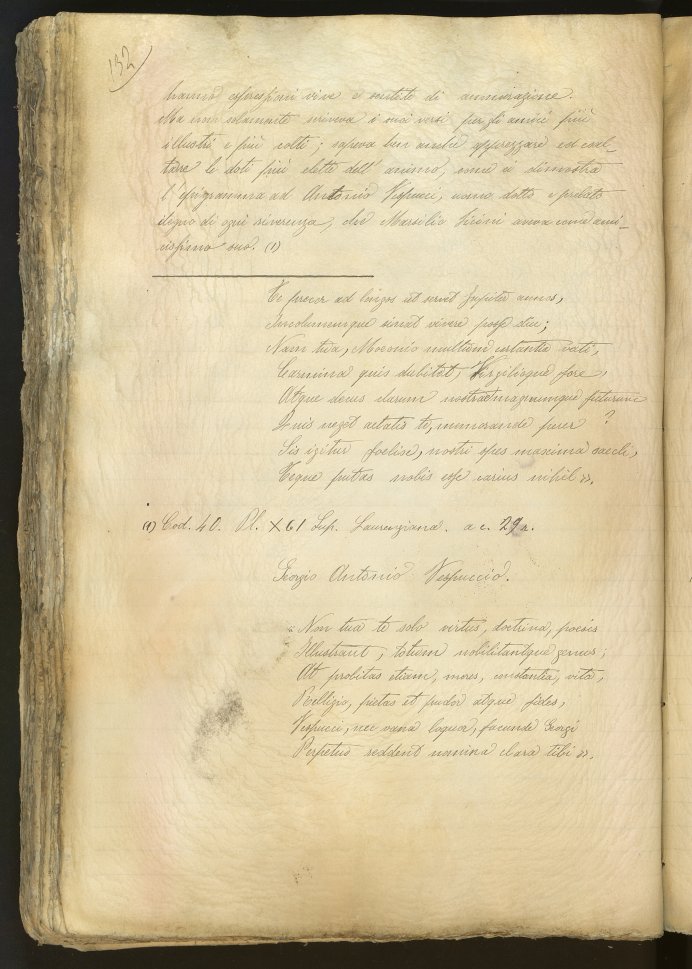 132
hanno espressioni vive e sentite di ammirazione.
Ma non solamente scriveva i suoi versi per gli amici più
illustri e più colti; sapeva ben anche apprezzare ed esal-
tare le doti più elette dell'animo, come ci dimostra
l'epigramma ad Antonio Vespucci, uomo dotto e prelato
degno di ogni riverenza, che Marsilio Ficini aveva come ami-
cissimo suo. (1)
Te precor ad longos ut servet Jupiter annos,
Incolumemque sinat vivere posse diu;
Nam tua, Meonio multum certantia vati,
Carmina quis dubitet, Virgilioque fore,
Atque decus clarum nostrae magnumque futurum
Quis neget aetatis te, memorande puer ?
Sis igitur foelix, nostri spes maxima saecli,
Neque putas nobis esse carius nihil ».
(1) Cod. 40. Pl. X61 Sup. Laurenziana. a c. 29 r.
Georgio Antonio Vespuccio.
« Non tua te solo virtus, doctrina, poesis
Illustrant, totum nobilitantque genus;
At probitas etiam, mores, constantia, vita,
Relligio, pietas et pudor atque fides,
Vespucci, nec vana loquor, facunde Georgi
Perpetuo reddent nomina clara tibi ».